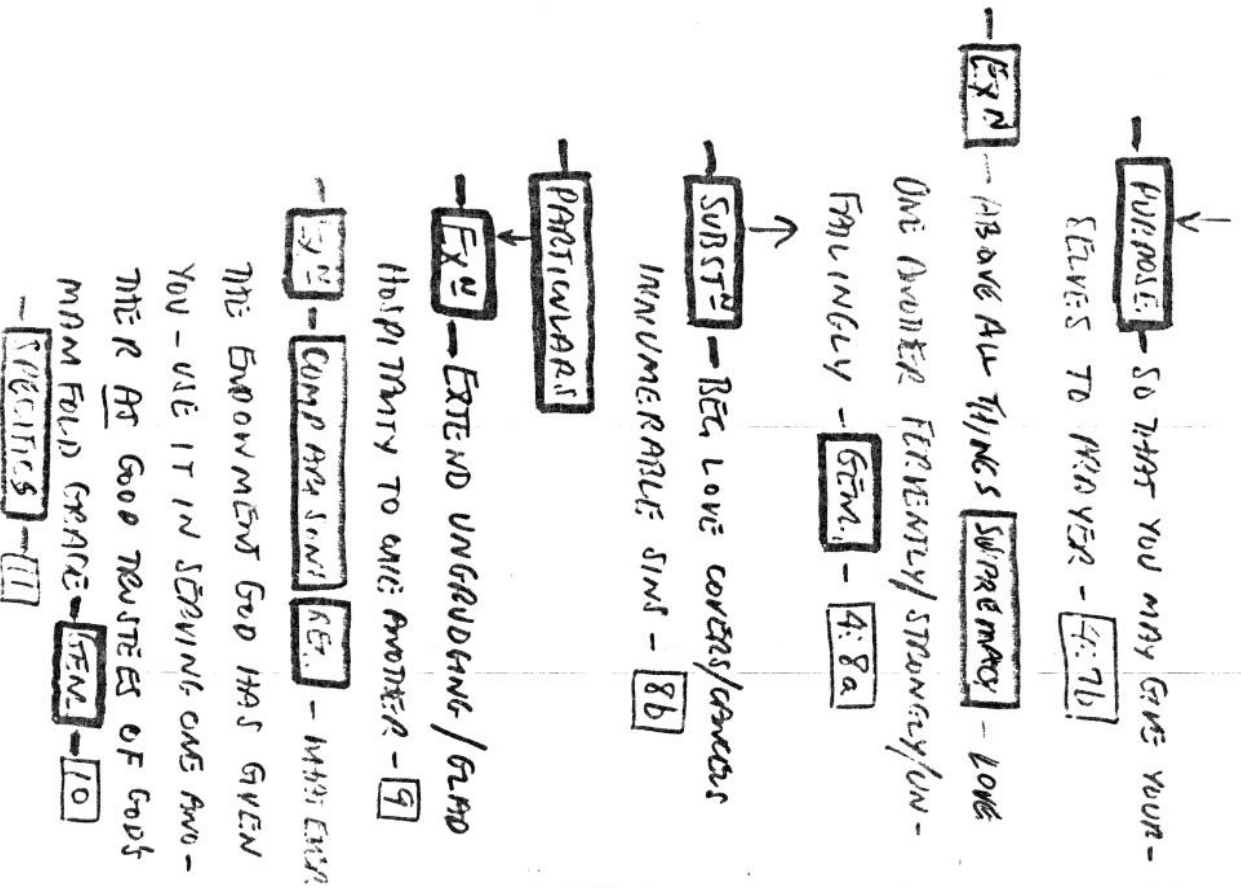 ↓
— PURPOSE — SO THAT YOU MAY GIVE YOUR-
SELVES TO PRAYER - 4:7b
— EXN — ABOVE ALL THINGS SUPREMACY - LOVE
ONE ANOTHER FERVENTLY/STRONGLY/UN-
FAILINGLY - GEN. - 4:8a
↑
— SUBSTN — BEC. LOVE COVERS/CANCELS
INNUMERABLE SINS - 8b
— PARTICULARS
↓
— EXN — EXTEND UNGRUDGING/GLAD
HOSPITALITY TO ONE ANOTHER - 9
— EXN — COMPARISON - WHATEVER
THE ENDOWMENT GOD HAS GIVEN
YOU - USE IT IN SERVING ONE ANO-
THER AS GOOD TRUSTEES OF GOD'S
MANIFOLD GRACE - GEN. - 10
— SPECIFICS - 11